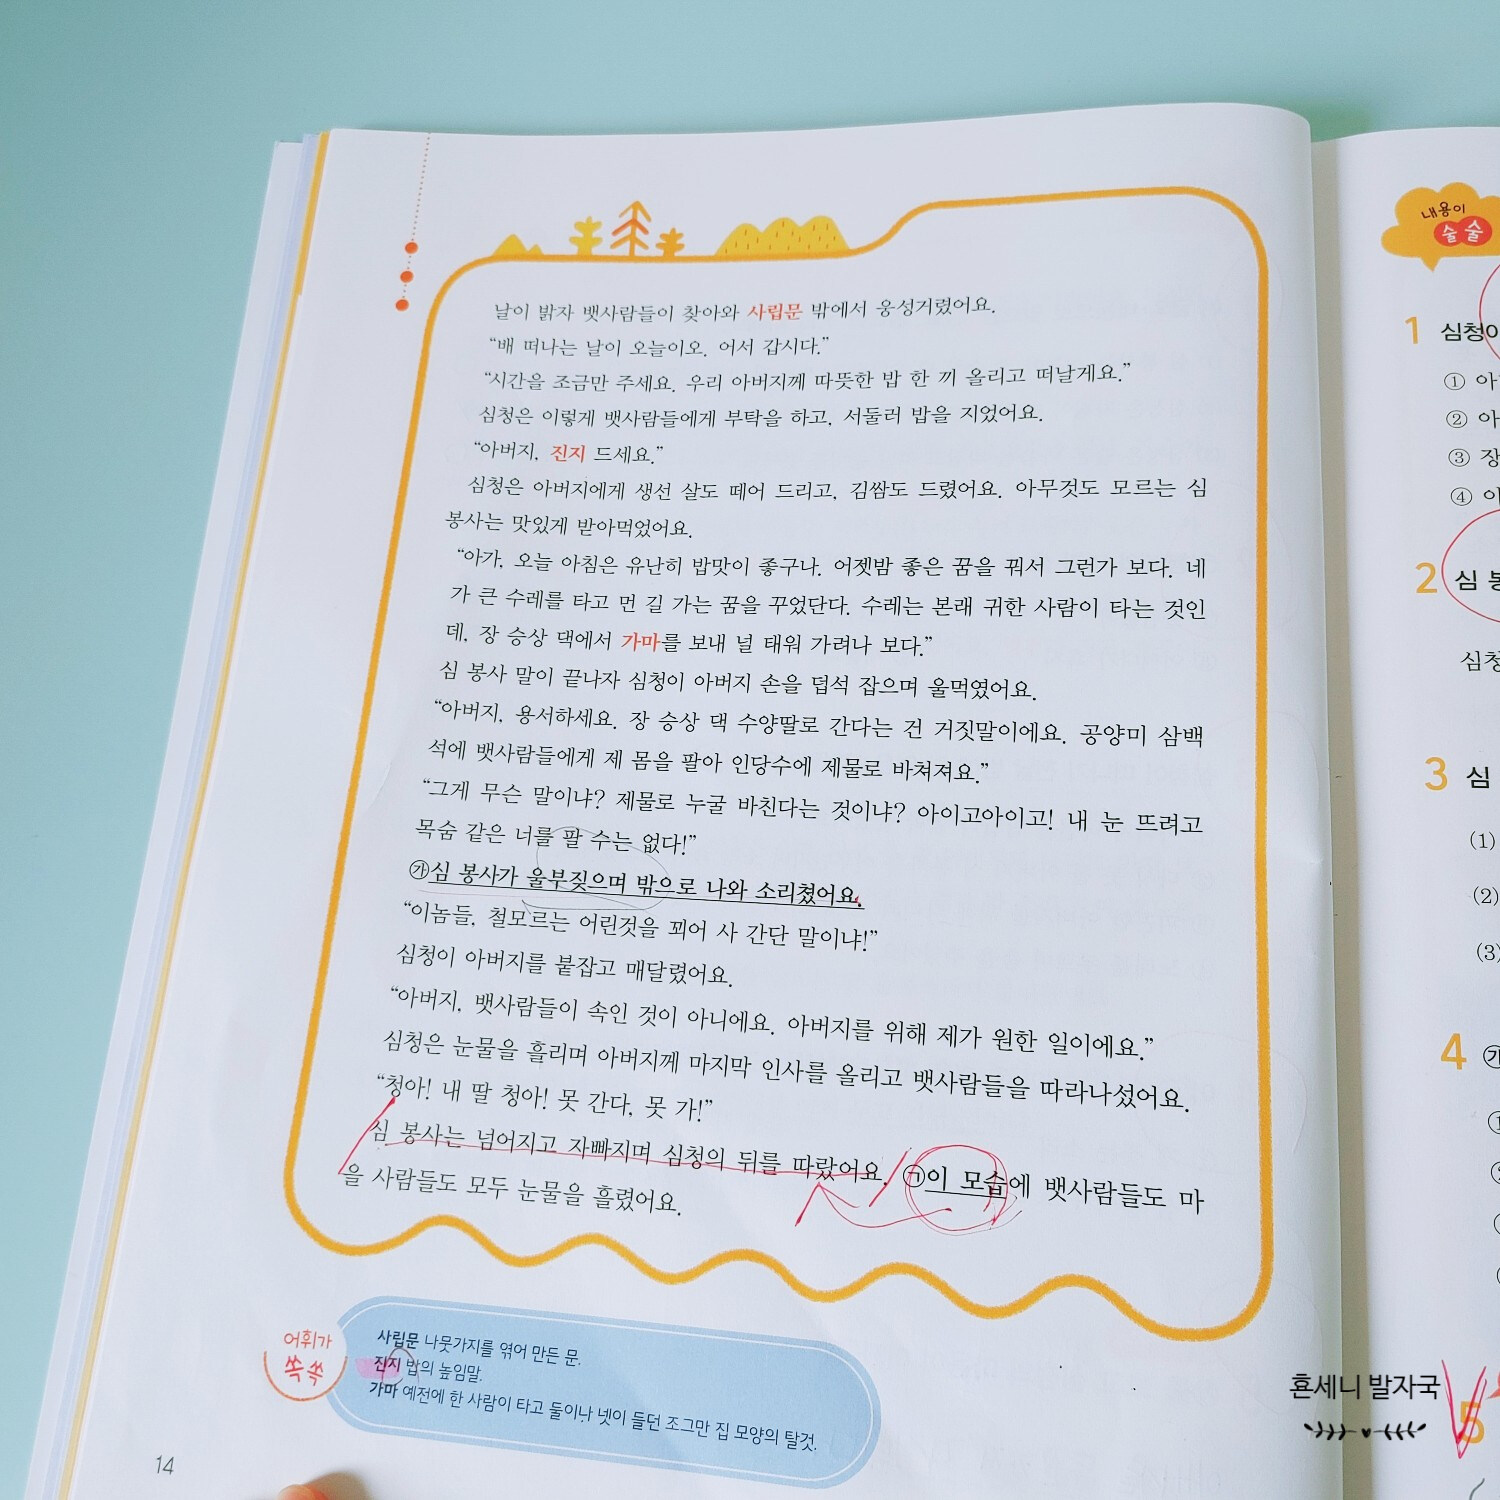 날이 밝자 뱃사람들이 찾아와 사립문 밖에서 웅성거렸어요.
“배 떠나는 날이 오늘이오. 어서 갑시다.”
“시간을 조금만 주세요. 우리 아버지께 따뜻한 밥 한 끼 올리고 떠날게요.”
심청은 이렇게 뱃사람들에게 부탁을 하고, 서둘러 밥을 지었어요.
“아버지, 진지 드세요.”
심청은 아버지에게 생선 살도 떼어 드리고, 김쌈도 드렸어요. 아무것도 모르는 심
봉사는 맛있게 받아먹었어요.
“아가, 오늘 아침은 유난히 밥맛이 좋구나. 어젯밤 좋은 꿈을 꿔서 그런가 보다. 네
가 큰 수레를 타고 먼 길 가는 꿈을 꾸었단다. 수레는 본래 귀한 사람이 타는 것인
데, 장 승상 댁에서 가마를 보내 널 태워 가려나 보다.”
심 봉사 말이 끝나자 심청이 아버지 손을 덥석 잡으며 울먹였어요.
“아버지, 용서하세요. 장 승상 댁 수양딸로 간다는 건 거짓말이에요. 공양미 삼백
석에 뱃사람들에게 제 몸을 팔아 인당수에 제물로 바쳐져요.”
“그게 무슨 말이냐? 제물로 누굴 바친다는 것이냐? 아이고아이고! 내 눈 뜨려고
목숨 같은 너를 팔 수는 없다!”
㉮심 봉사가 울부짖으며 밖으로 나와 소리쳤어요.
“이놈들, 철모르는 어린것을 꾀어 사 간단 말이냐!”
심청이 아버지를 붙잡고 매달렸어요.
“아버지, 뱃사람들이 속인 것이 아니에요. 아버지를 위해 제가 원한 일이에요.”
심청은 눈물을 흘리며 아버지께 마지막 인사를 올리고 뱃사람들을 따라나섰어요.
“청아! 내 딸 청아! 못 간다, 못 가!”
심 봉사는 넘어지고 자빠지며 심청의 뒤를 따랐어요. ㉠이 모습에 뱃사람들도 마
을 사람들도 모두 눈물을 흘렸어요.
어휘가
쏙쏙
사립문 나뭇가지를 엮어 만든 문.
진지 밥의 높임말.
가마 예전에 한 사람이 타고 둘이나 넷이 들던 조그만 집 모양의 탈것.
14
내용이
술술
1 심청이
① 아
② 아
③ 장
④
2 심 봉
심청
3 심
(1)
(2)
(3)
4 ㉮
5
혼세니 발자국